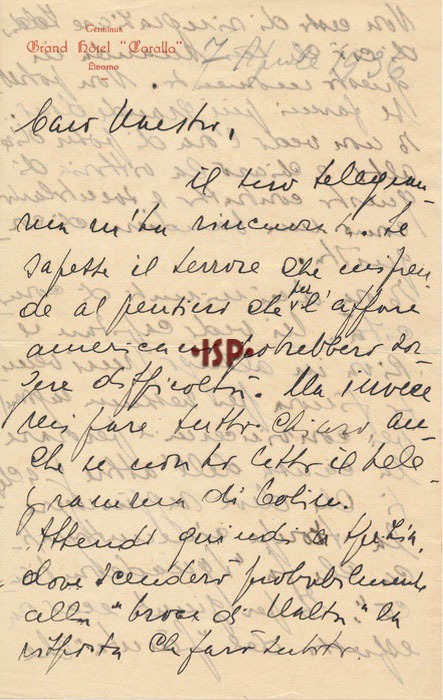 Terminus
Grand Hôtel "Corallo"
Livorno
7 Aprile 1936
Caro Maestro,
il suo telegram-
ma m'ha rincuorato. Se
sapesse il terrore che mi pren-
de al pensiero che per l'affare
americano potrebbero sor-
gere difficoltà. Ma invece
mi pare tutto chiaro, an-
che se non ho letto il tele-
gramma di Colin.
Attendo quindi a Spezia,
dove scenderò probabilmente
alla "Croce di Malta" la
risposta che farò subito.
·ISP·